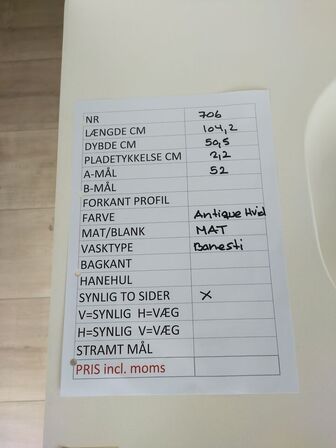 NR 706
LÆNGDE CM 104,2
DYBDE CM 50,5
PLADETYKKELSE CM 2,2
A-MÅL 52
B-MÅL
FORKANT PROFIL
FARVE Antique Hvid
MAT/BLANK MAT
VASKTYPE Banesti
BAGKANT
HANEHUL
SYNLIG TO SIDER X
V=SYNLIG H=VÆG
H=SYNLIG V=VÆG
STRAMT MÅL
PRIS incl. moms